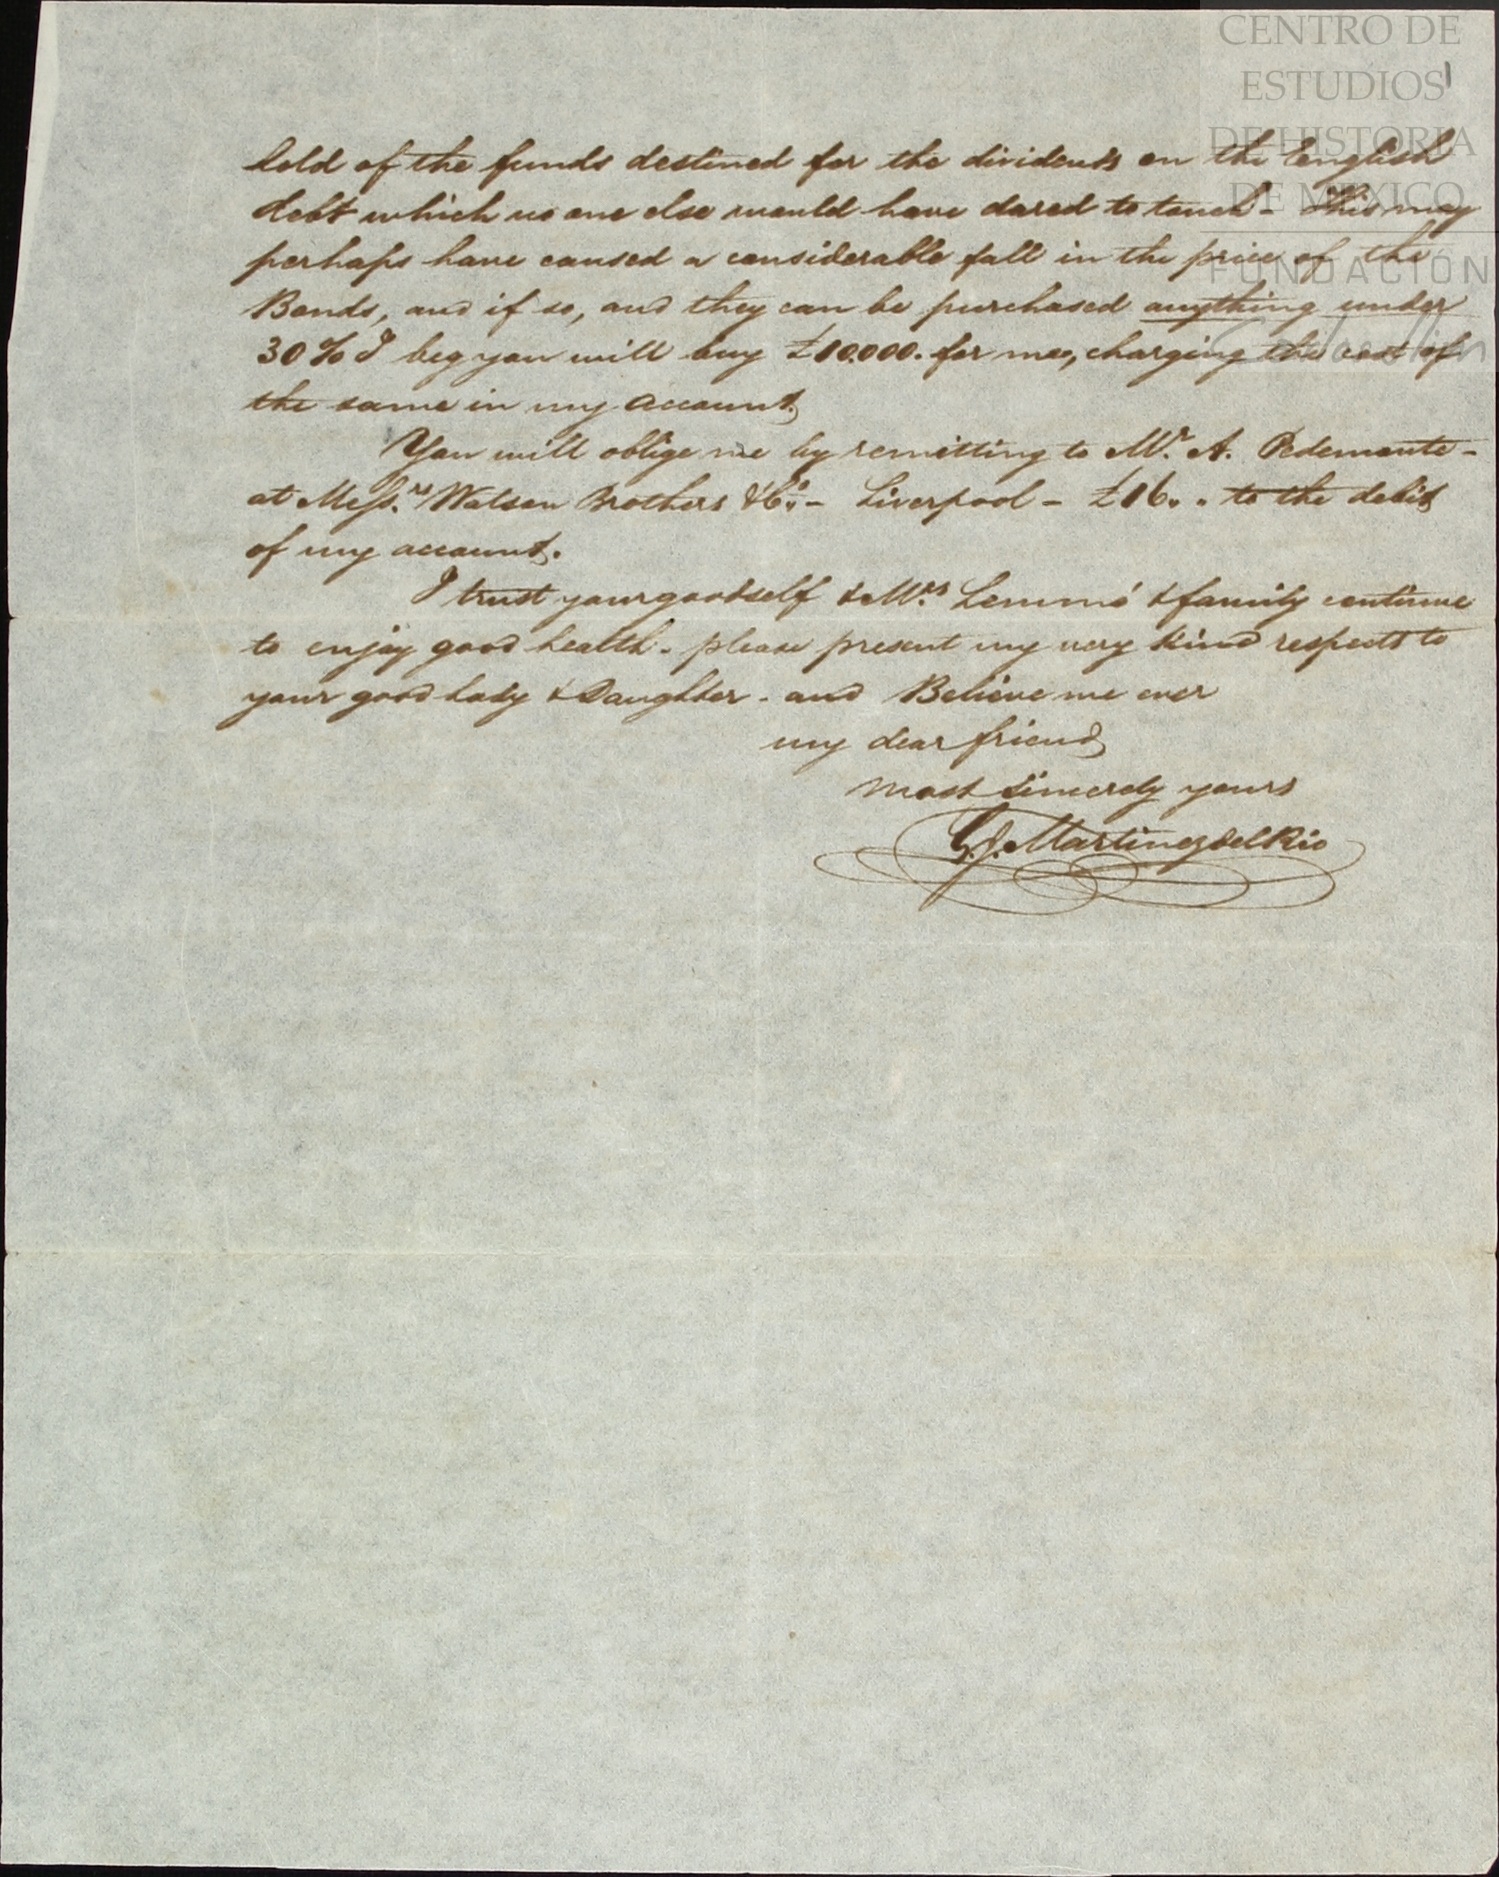 CENTRO DE
ESTUDIOS
DE HISTORIA
DE MÉXICO
FUNDACIÓN
Carlos Slim
hold of the funds destined for the dividends on the English
debt which no one else would have dared to touch - This may
perhaps have caused a considerable fall in the price of the
Bonds, and if so, and they can be purchased anything under
30% I beg you will buy £10.000. for me, charging the cost of
the same in my account.
You will oblige me by remitting to Mr. A. Pedemonte -
at Messrs. Watson Brothers & Co. - Liverpool - £16. . to the debit
of my account.
I trust your goodself & Mrs Lemmé & family continue
to enjoy good health - please present my very kind respects to
your good Lady & Daughter - and Believe me ever
my dear friend
most sincerely yours
G. J. Martinez del Rio